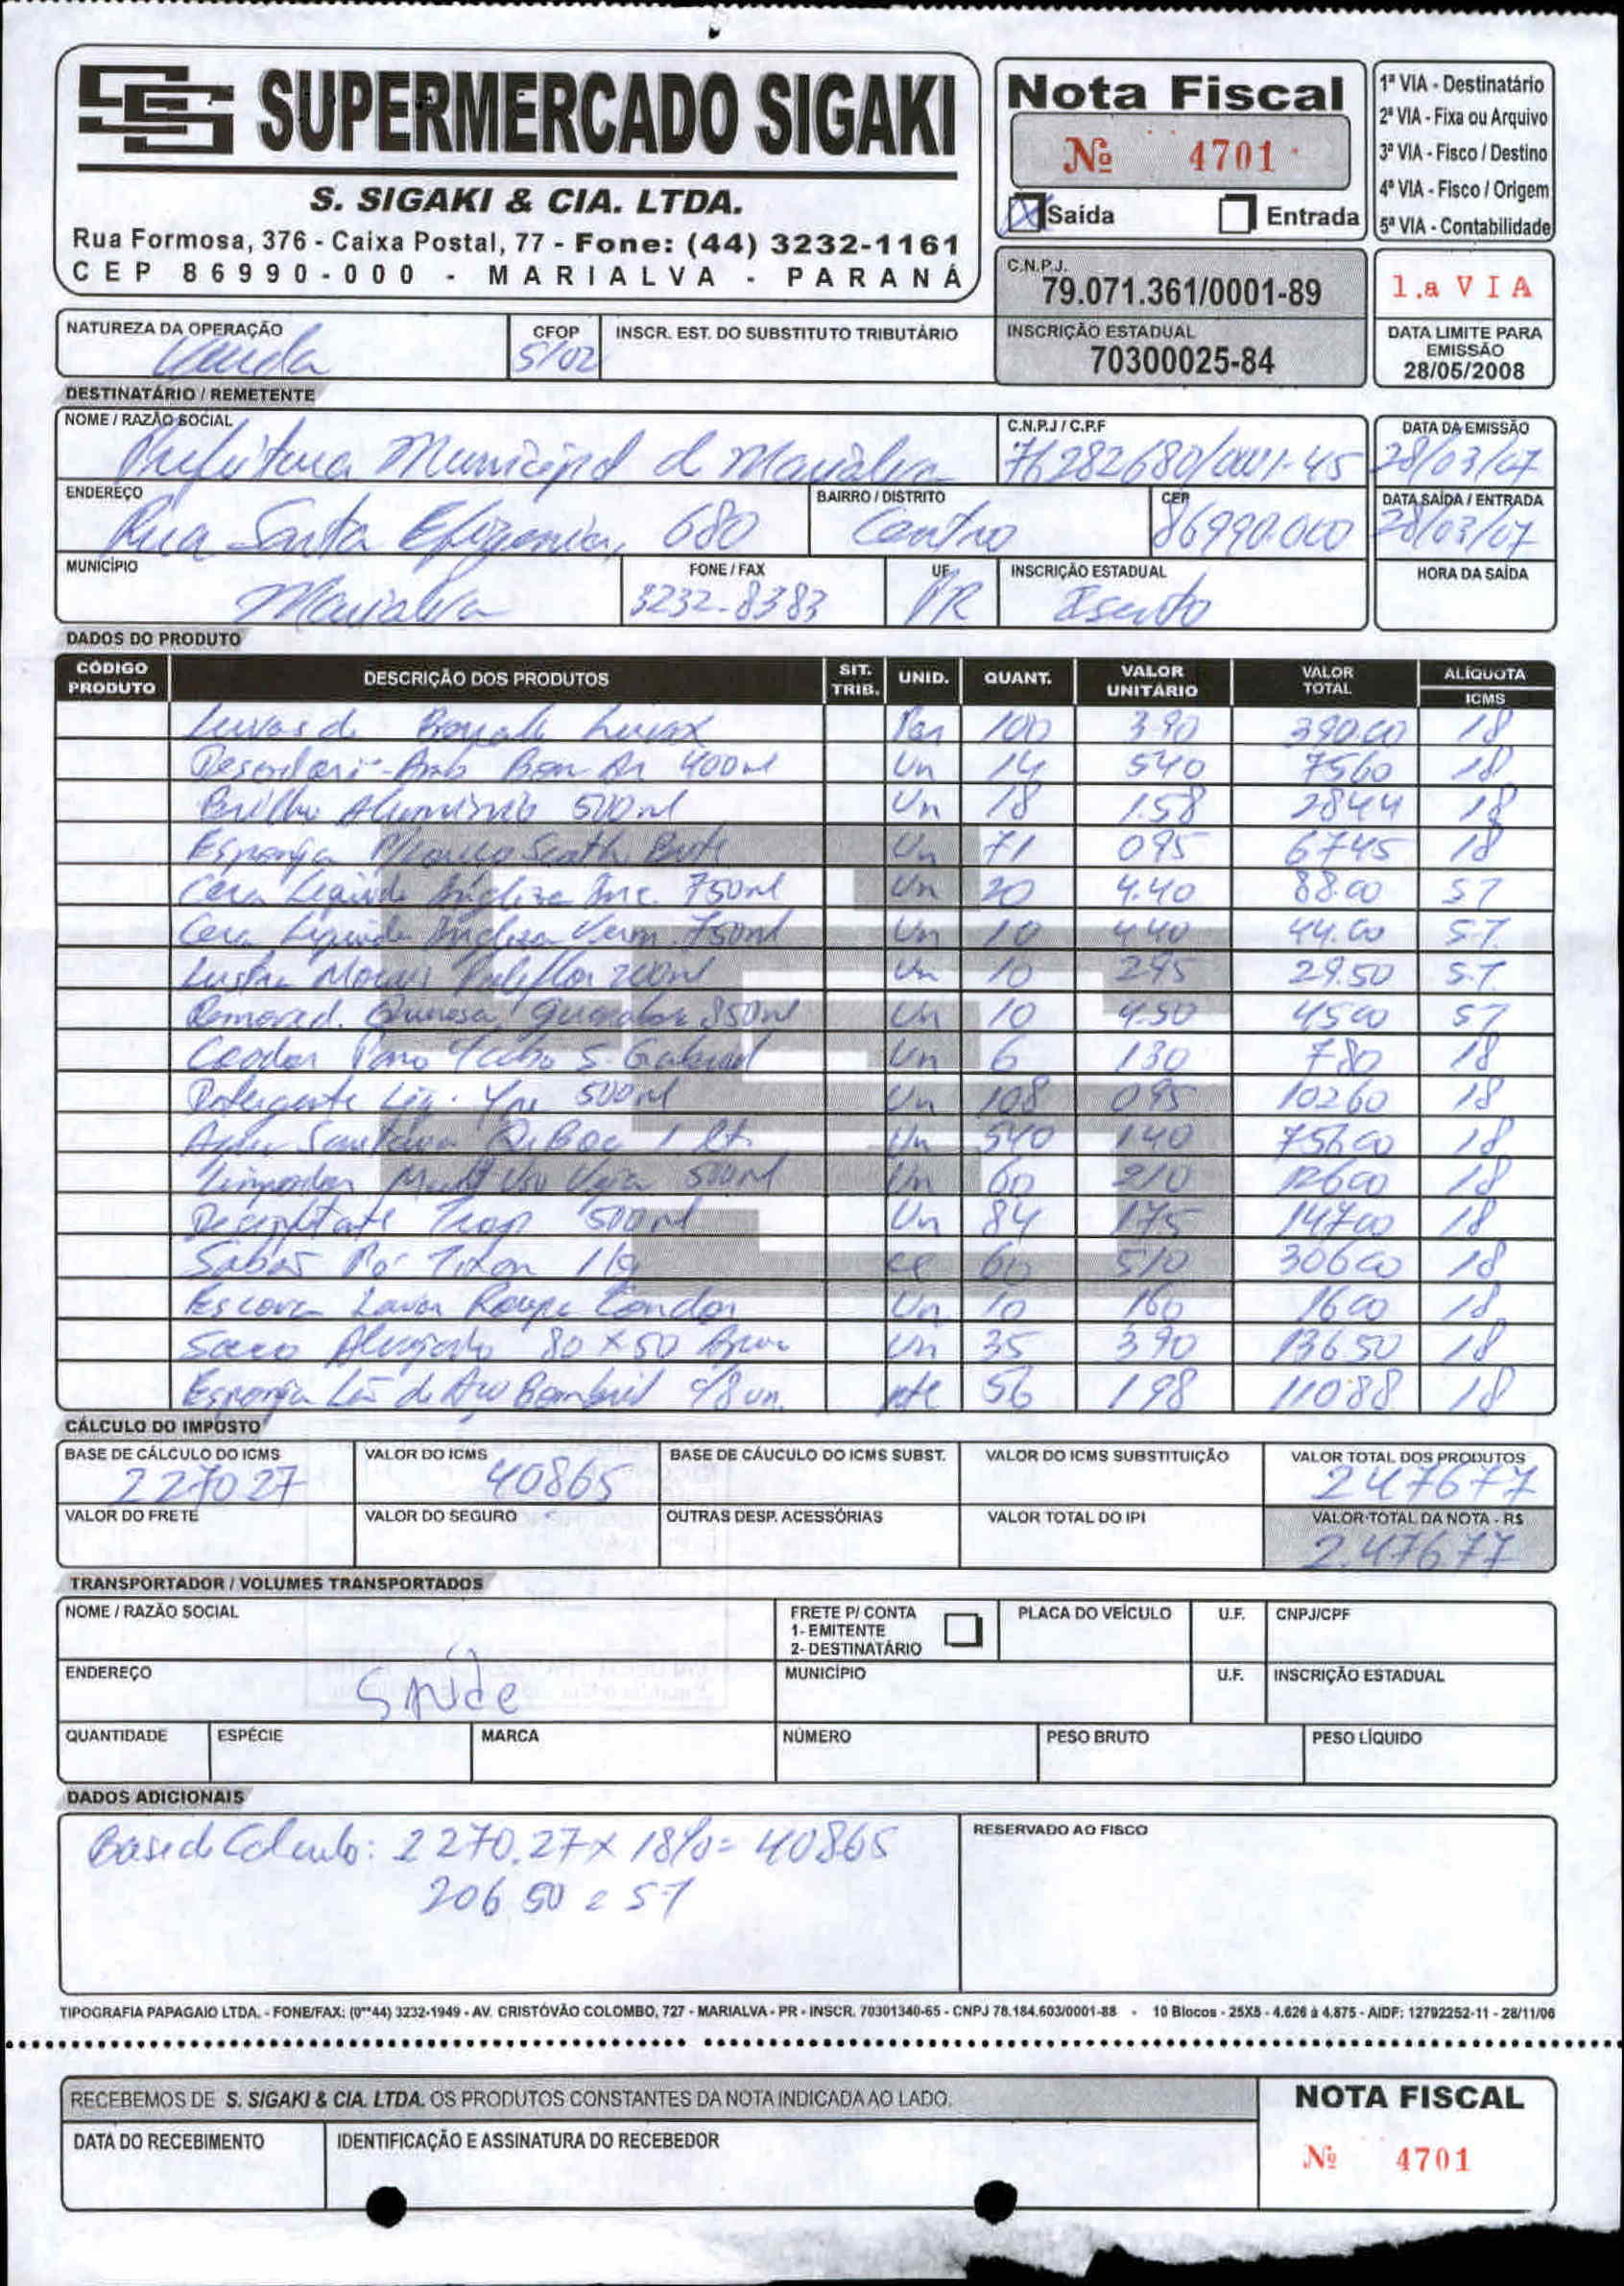 SS SUPERMERCADO SIGAKI
S. SIGAKI & CIA. LTDA.
Rua Formosa, 376 - Caixa Postal, 77 - Fone: (44) 3232-1161
CEP 86990-000 - MARIALVA - PARANÁ
Nota Fiscal
Nº 4701
X Saída Entrada
1ª VIA - Destinatário
2ª VIA - Fixa ou Arquivo
3ª VIA - Fisco / Destino
4ª VIA - Fisco / Origem
5ª VIA - Contabilidade
C.N.P.J.
79.071.361/0001-89
1.a VIA
NATUREZA DA OPERAÇÃO CFOP INSCR. EST. DO SUBSTITUTO TRIBUTÁRIO
Venda 5/02
INSCRIÇÃO ESTADUAL
70300025-84
DATA LIMITE PARA
EMISSÃO
28/05/2008
DESTINATÁRIO / REMETENTE
NOME / RAZÃO SOCIAL C.N.P.J / C.P.F DATA DA EMISSÃO
Prefeitura Municipal d Marialva 76282680/0001-45 28/03/07
ENDEREÇO BAIRRO / DISTRITO CEP DATA SAÍDA / ENTRADA
Rua Santa Efigenia, 680 Centro 86990.000 28/03/07
MUNICÍPIO FONE / FAX UF INSCRIÇÃO ESTADUAL HORA DA SAÍDA
Marialva 3232-8383 PR Isento
DADOS DO PRODUTO
CÓDIGO PRODUTO DESCRIÇÃO DOS PRODUTOS SIT. TRIB. UNID. QUANT. VALOR UNITÁRIO VALOR TOTAL ALÍQUOTA ICMS
Luvas d Par 100 3.90 390.00 18
Bon Ar 400ml Un 14 540 7560 18
Brilho Aluminio 500ml Un 18 1.58 2844 18
Esponja Un 71 095 6745 18
Cera Liquida Inglesa Inc. 750ml Un 20 4.40 88.00 ST
Cera Liquida Inglesa Verm 750ml Un 10 440 44.00 S.T.
Lustra Moveis 200ml Un 10 295 29.50 S.T.
850ml Un 10 4.50 4500 ST
Un 6 130 780 18
Detergente Liq. Ype 500ml Un 108 095 10260 18
Agua Sanitaria 1 Lt. Un 540 140 75600 18
Limpador Mult Uso Veja 500ml Un 60 210 12600 18
500ml Un 84 175 14700 18
Sabão Pó Tixan 1kg cx 60 510 30600 18
Escova Lavar Roupa Condor Un 10 160 1600 18
Saco Alvejado 80 x 50 Un 35 390 136.50 18
Esponja Lã de Aço Bombril c/8 un. pte 56 198 11088 18
CÁLCULO DO IMPOSTO
BASE DE CÁLCULO DO ICMS VALOR DO ICMS BASE DE CÁUCULO DO ICMS SUBST. VALOR DO ICMS SUBSTITUIÇÃO VALOR TOTAL DOS PRODUTOS
227027 40865 247677
VALOR DO FRETE VALOR DO SEGURO OUTRAS DESP. ACESSÓRIAS VALOR TOTAL DO IPI VALOR TOTAL DA NOTA - R$
2.476 77
TRANSPORTADOR / VOLUMES TRANSPORTADOS
NOME / RAZÃO SOCIAL FRETE P/ CONTA PLACA DO VEÍCULO U.F. CNPJ/CPF
1- EMITENTE
2- DESTINATÁRIO
ENDEREÇO MUNICÍPIO U.F. INSCRIÇÃO ESTADUAL
SAúde
QUANTIDADE ESPÉCIE MARCA NÚMERO PESO BRUTO PESO LÍQUIDO
DADOS ADICIONAIS
Base d Calculo: 2 270.27 x 18% = 40865
206 50 = ST
RESERVADO AO FISCO
TIPOGRAFIA PAPAGAIO LTDA. - FONE/FAX: (0**44) 3232-1949 - AV. CRISTÓVÃO COLOMBO, 727 - MARIALVA - PR - INSCR. 70301340-65 - CNPJ 78.184.603/0001-88 - 10 Blocos - 25X5 - 4.626 à 4.875 - AIDF: 12792252-11 - 28/11/06
RECEBEMOS DE S. SIGAKI & CIA. LTDA. OS PRODUTOS CONSTANTES DA NOTA INDICADA AO LADO.
DATA DO RECEBIMENTO IDENTIFICAÇÃO E ASSINATURA DO RECEBEDOR
NOTA FISCAL
Nº 4701